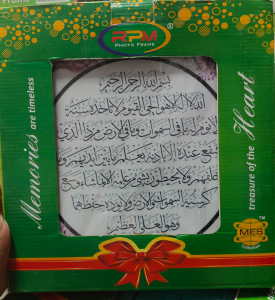 RPM
PHOTO FRAME
Memories are timeless
treasure of the Heart
بسم الله الرحمن الرحيم
الله لا اله الا هو الحي القيوم لا تاخذه سنة
ولا نوم له ما في السموات وما في الارض من ذا الذي
يشفع عنده الا باذنه يعلم ما بين ايديهم وما
خلفهم ولا يحيطون بشيء من علمه الا بما شاء وسع
كرسيه السموات والارض ولا يؤده حفظهما
وهو العلي العظيم
MES
Collection
TM